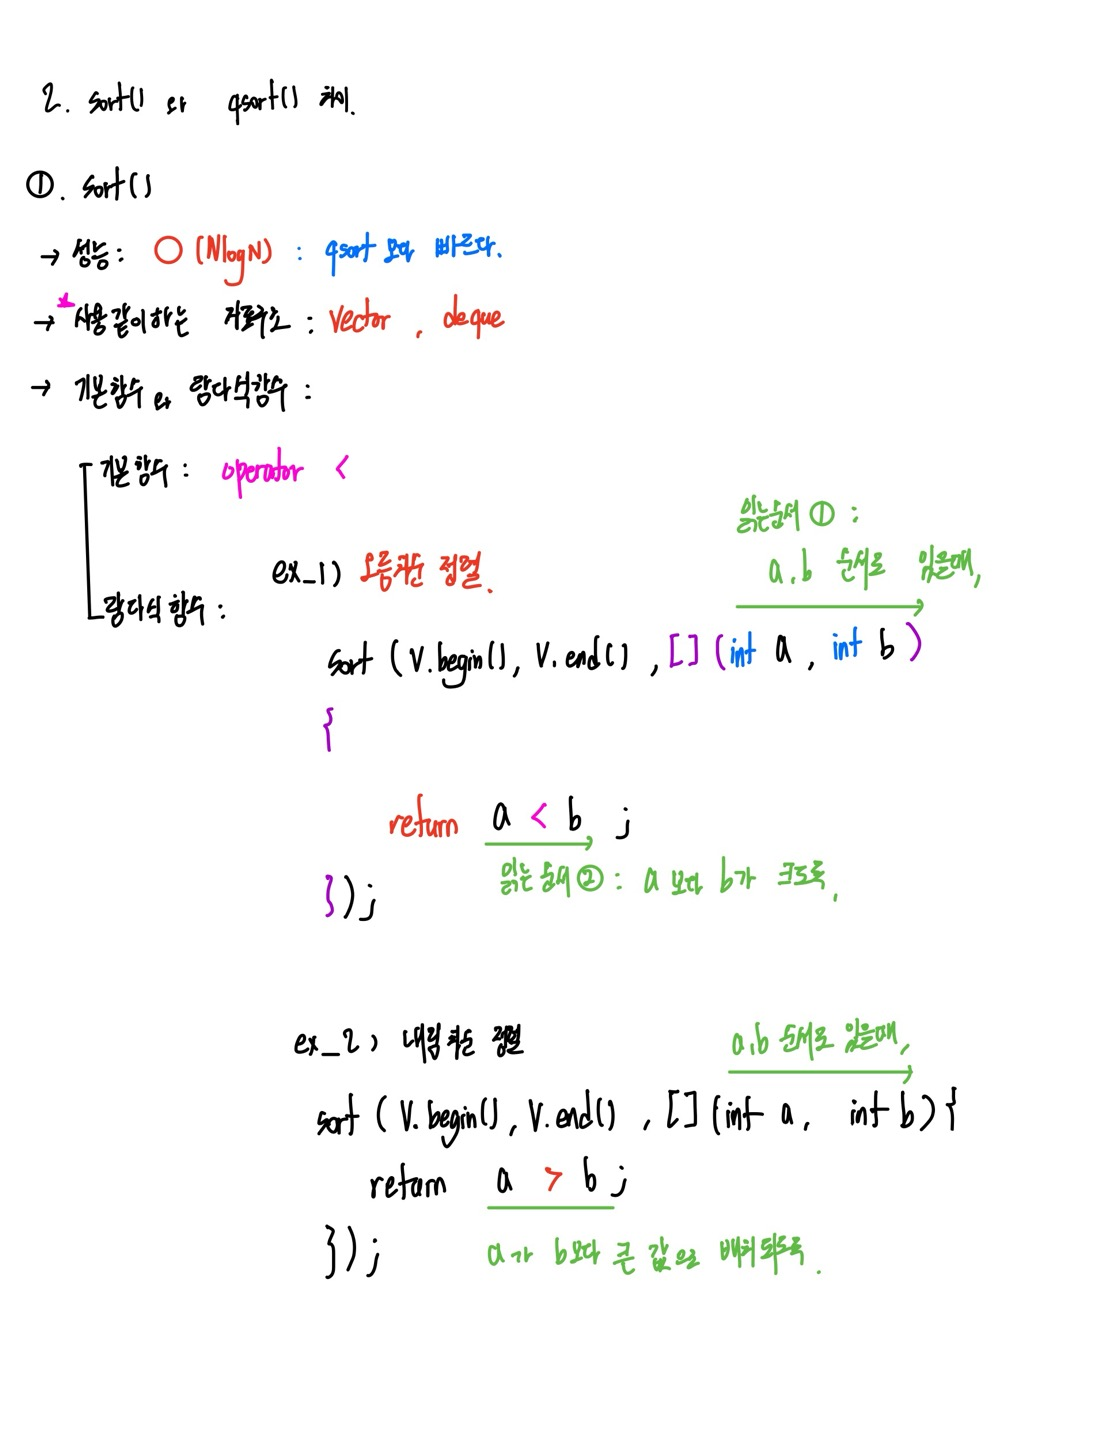 2. sort() 와 qsort() 차이.
①. sort()
→ 성능: O (NlogN) : qsort 보다 빠르다.
→ *사용같이하는 자료구조 : vector , deque
→ 기본함수 와 람다식함수 :
기본함수 : operator <
읽는순서 ① :
ex_1) 오름차순 정렬.
a,b 순서로 있을때,
람다식 함수 :
sort (V.begin(), V.end() , [] (int a , int b )
{
return a < b ;
읽는 순서 ② : a 보다 b가 크도록,
});
ex_2) 내림차순 정렬
a,b 순서로 있을때,
sort ( V.begin(), V.end() , [] (int a, int b) {
return a > b ;
});
a가 b보다 큰 값으로 배치되도록.